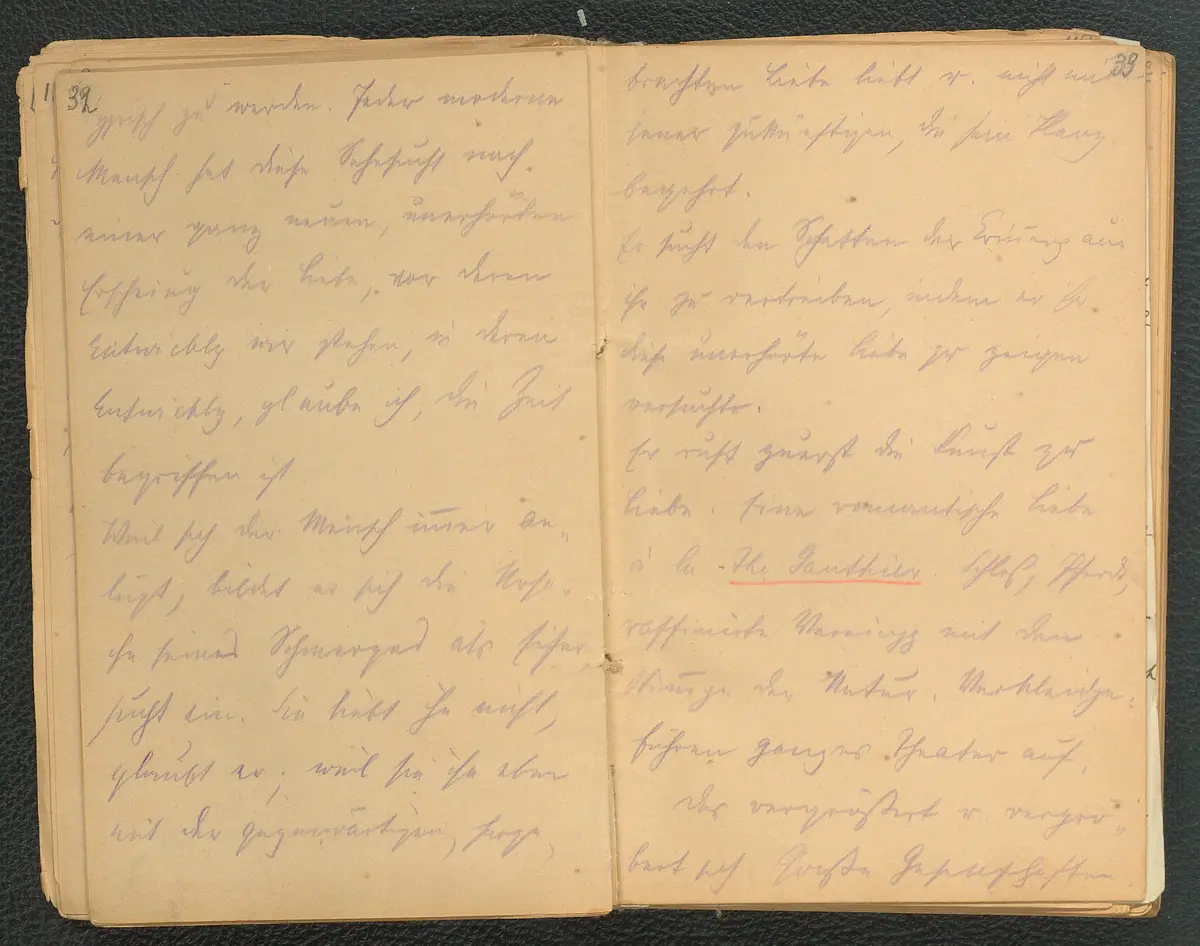 32
typisch zu werden. Jeder moderne
Mensch hat diese Sehnsucht nach
einer ganz neuen, unerhörten
Erscheing der Liebe, vor deren
Entwicklg wir stehen, in deren
Entwicklg, glaube ich, die Zeit
begriffen ist
Weil sich der Mensch immer an-
lügt, bildet er sich die Ursa-
che seines Schmerzes als Eifer
sucht ein. Sie liebt ihn nicht,
glaubt er, weil sie ihn eben
mit der gegenwärtigen,
33
brachten Liebe liebt u. nicht mit
jener zukünftigen, die sein Herz
begehrt.
Er sucht den Schatten der Erinnerg aus
ihr zu vertreiben, indem er ihr
diese unerhörte Liebe zu zeigen
versuchte.
Er ruft zuerst die Kunst zur
Liebe. Eine romantische Liebe
à la Th. Gauthier. Schloß, Pferde,
raffinirte Vereinigg mit den
der Natur. Verkleidge.
führen ganzes Theater auf.
Das vergrößert u. vergrö-
bert sich Große Gesellschaften